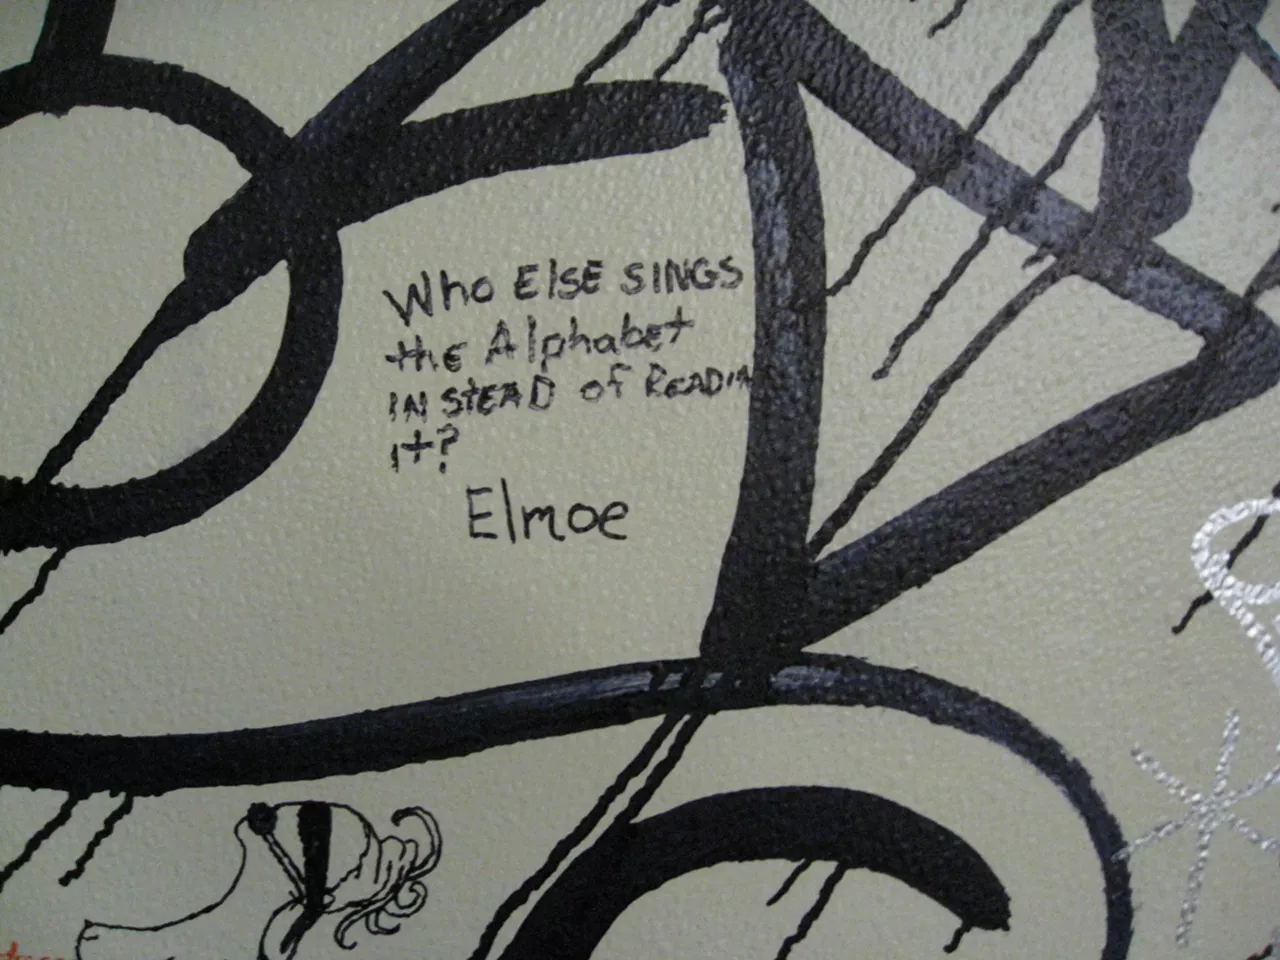 Who Else SINGS
the Alphabet
INSTEAD of READIN
it?
Elmoe